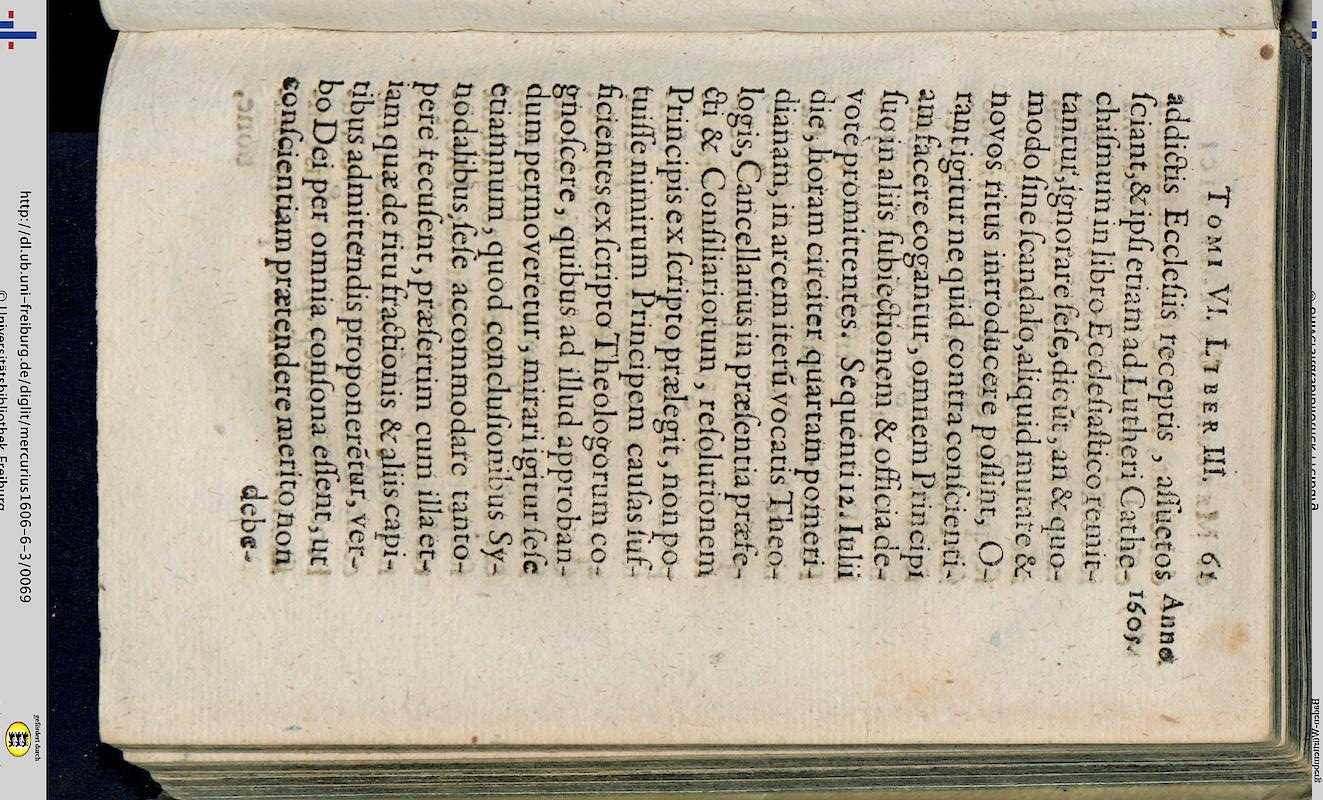 TOMI VI. LIBER III. 61
addictis Ecclesiis receptis, assuetos Anno
sciant, & ipsi etiam ad Lutheri Cathe- 1605.
chismum in libro Ecclesiastico remit-
tantur, ignorare sese, dicūt, an & quo-
modo sine scandalo, aliquid mutare &
novos ritus introducere possint, O-
rant igitur ne quid contra conscienti-
am facere cogantur, omnem Principi
suo in aliis subiectionem & officia de-
vote promittentes. Sequenti 12. Iulii
die, horam circiter quartam pomeri-
dianam, in arcem iterū vocatis Theo-
logis, Cancellarius in præsentia præfe-
cti & Consiliariorum, resolutionem
Principis ex scripto prælegit, non po-
tuisse nimirum Principem causas suf-
ficientes ex scripto Theologorum co-
gnoscere, quibus ad illud approban-
dum permoveretur, mirari igitur sese
etiamnum, quod conclusionibus Sy-
nodalibus, sese accommodare tanto-
pere recusent, præsertim cum illa et-
iam quæ de ritu fractionis & aliis capi-
tibus admittendis proponerētur, ver-
bo Dei per omnia consona essent, ut
conscientiam prætendere merito non
debe-
http://dl.ub.uni-freiburg.de/diglit/mercurius1606-6-3/0069
© Universitätsbibliothek Freiburg
gefördert durch